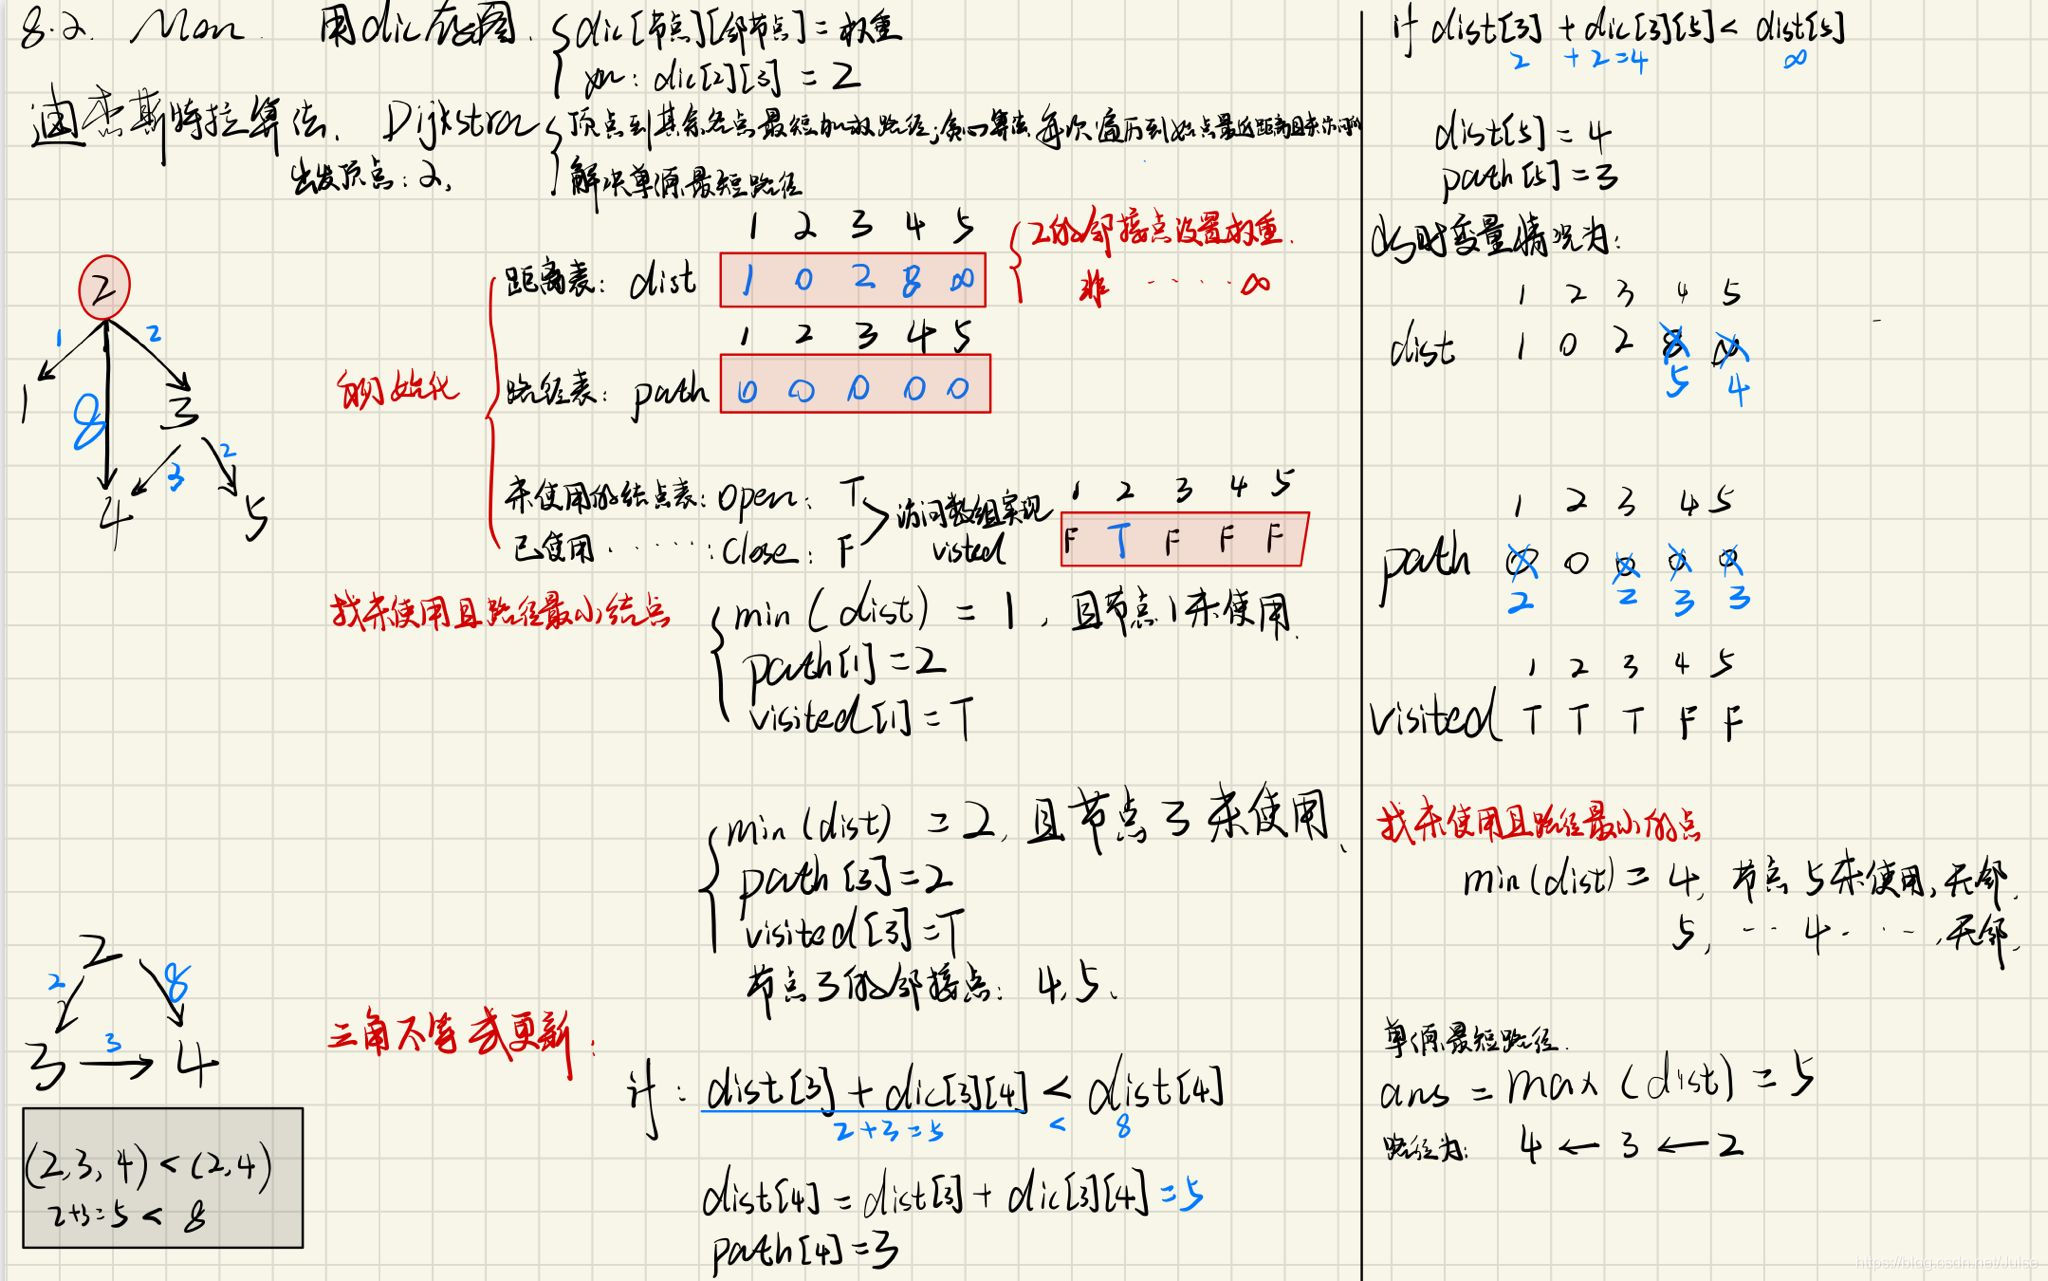 8.2. Mon. 用dic存图. dic[节点][邻节点]=权重
如: dic[2][3] = 2
迪杰斯特拉算法. Dijkstra 顶点到其余各点最短加权路径;贪心算法,每次遍历到始点最近距离且未访问的
出发顶点:2, 解决单源最短路径
1 2 3 4 5
距离表: dist 1 0 2 8 ∞
2的邻接点设置权重.
非 ····· ∞
1 2 3 4 5
初始化
路径表: path 0 0 0 0 0
未使用的结点表: open: T
已使用······: close: F
访问数组实现
visted
1 2 3 4 5
F T F F F
2
1 2
1 8 3
3 2
4 5
找未使用且路径最小结点
min(dist) = 1, 且节点1未使用.
path[1]=2
visited[1]=T
min(dist) = 2, 且节点3未使用、
path[3]=2
visited[3]=T
节点3的邻接点: 4,5、
2
2 8
3 3 4
(2,3,4)<(2,4)
2+3=5 < 8
三角不等式更新:
if: dist[3]+dic[3][4] < dist[4]
2+3=5 < 8
dist[4] = dist[3]+ dic[3][4] =5
path[4]=3
if dist[3] +dic[3][5]< dist[5]
2 +2=4 ∞
dist[5]=4
path[5]=3
此时变量情况为:
1 2 3 4 5
dist 1 0 2 8 ∞
5 4
1 2 3 4 5
path 0 0 0 0 0
2 2 3 3
1 2 3 4 5
visited T T T F F
找未使用且路径最小的点
min(dist)= 4, 节点5未使用,无邻.
5, ·· 4 ····, 无邻.
单源最短路径.
ans = max (dist) = 5
路径为: 4 ← 3 ← 2
https://blog.csdn.net/Julse